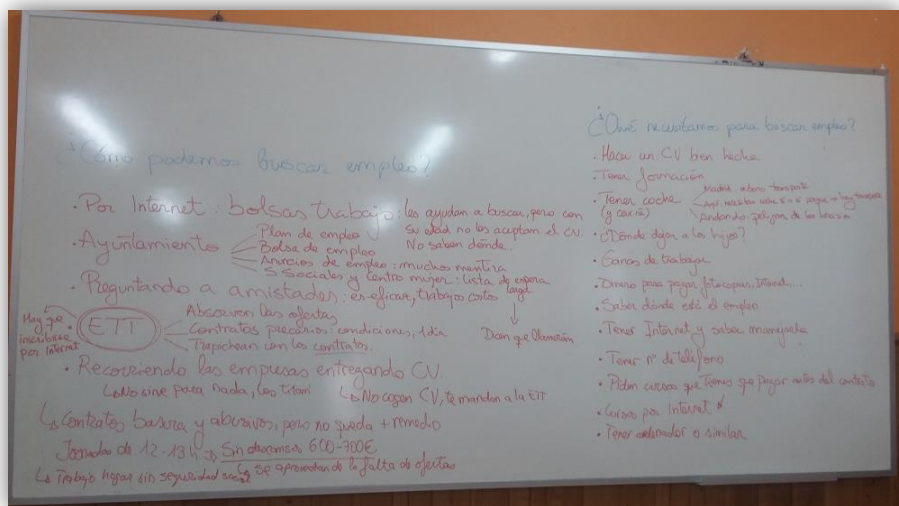 ¿Cómo podemos buscar empleo?
· Por Internet: bolsas trabajo: les ayudan a buscar, pero con
su edad no los aceptan el CV.
No saben dónde.
· Ayuntamiento
Plan de empleo
Bolsa de empleo
Anuncios de empleo: muchos mentira
S. Sociales y centro mujer: lista de espera
larga
Dicen que llamarán
· Preguntando a amistades: es eficaz, trabajos cortos
Hay que
inscribirse
por Internet
· ETT
Absorven las ofertas
Contratos precarios: condiciones, 1 día
Trapichean con los contratos.
· Recorriendo las empresas entregando CV.
No sirve para nada, los tiran
No cogen CV, te mandan a la ETT
Contratos basura y abusivos, pero no queda + remedio
Jornadas de 12-13 h → Sin descansos 600-700€
se aprovechan de la falta de ofertas
Trabajo hogar sin seguridad social
¿Qué necesitamos para buscar empleo?
· Hacer un CV bien hecho
· Tener formación
· Tener coche
(y carné)
Madrid: abono transporte
Andando: peligro de
· ¿Dónde dejar a los hijos?
· Ganas de trabajar
· Dinero para pagar fotocopias, Internet...
· Saber dónde está el empleo
· Tener Internet y saber manejarlo
· Tener nº de teléfono
· Piden cursos que tienes que pagar antes del contrato
· Cursos por Internet
· Tener ordenador o similar